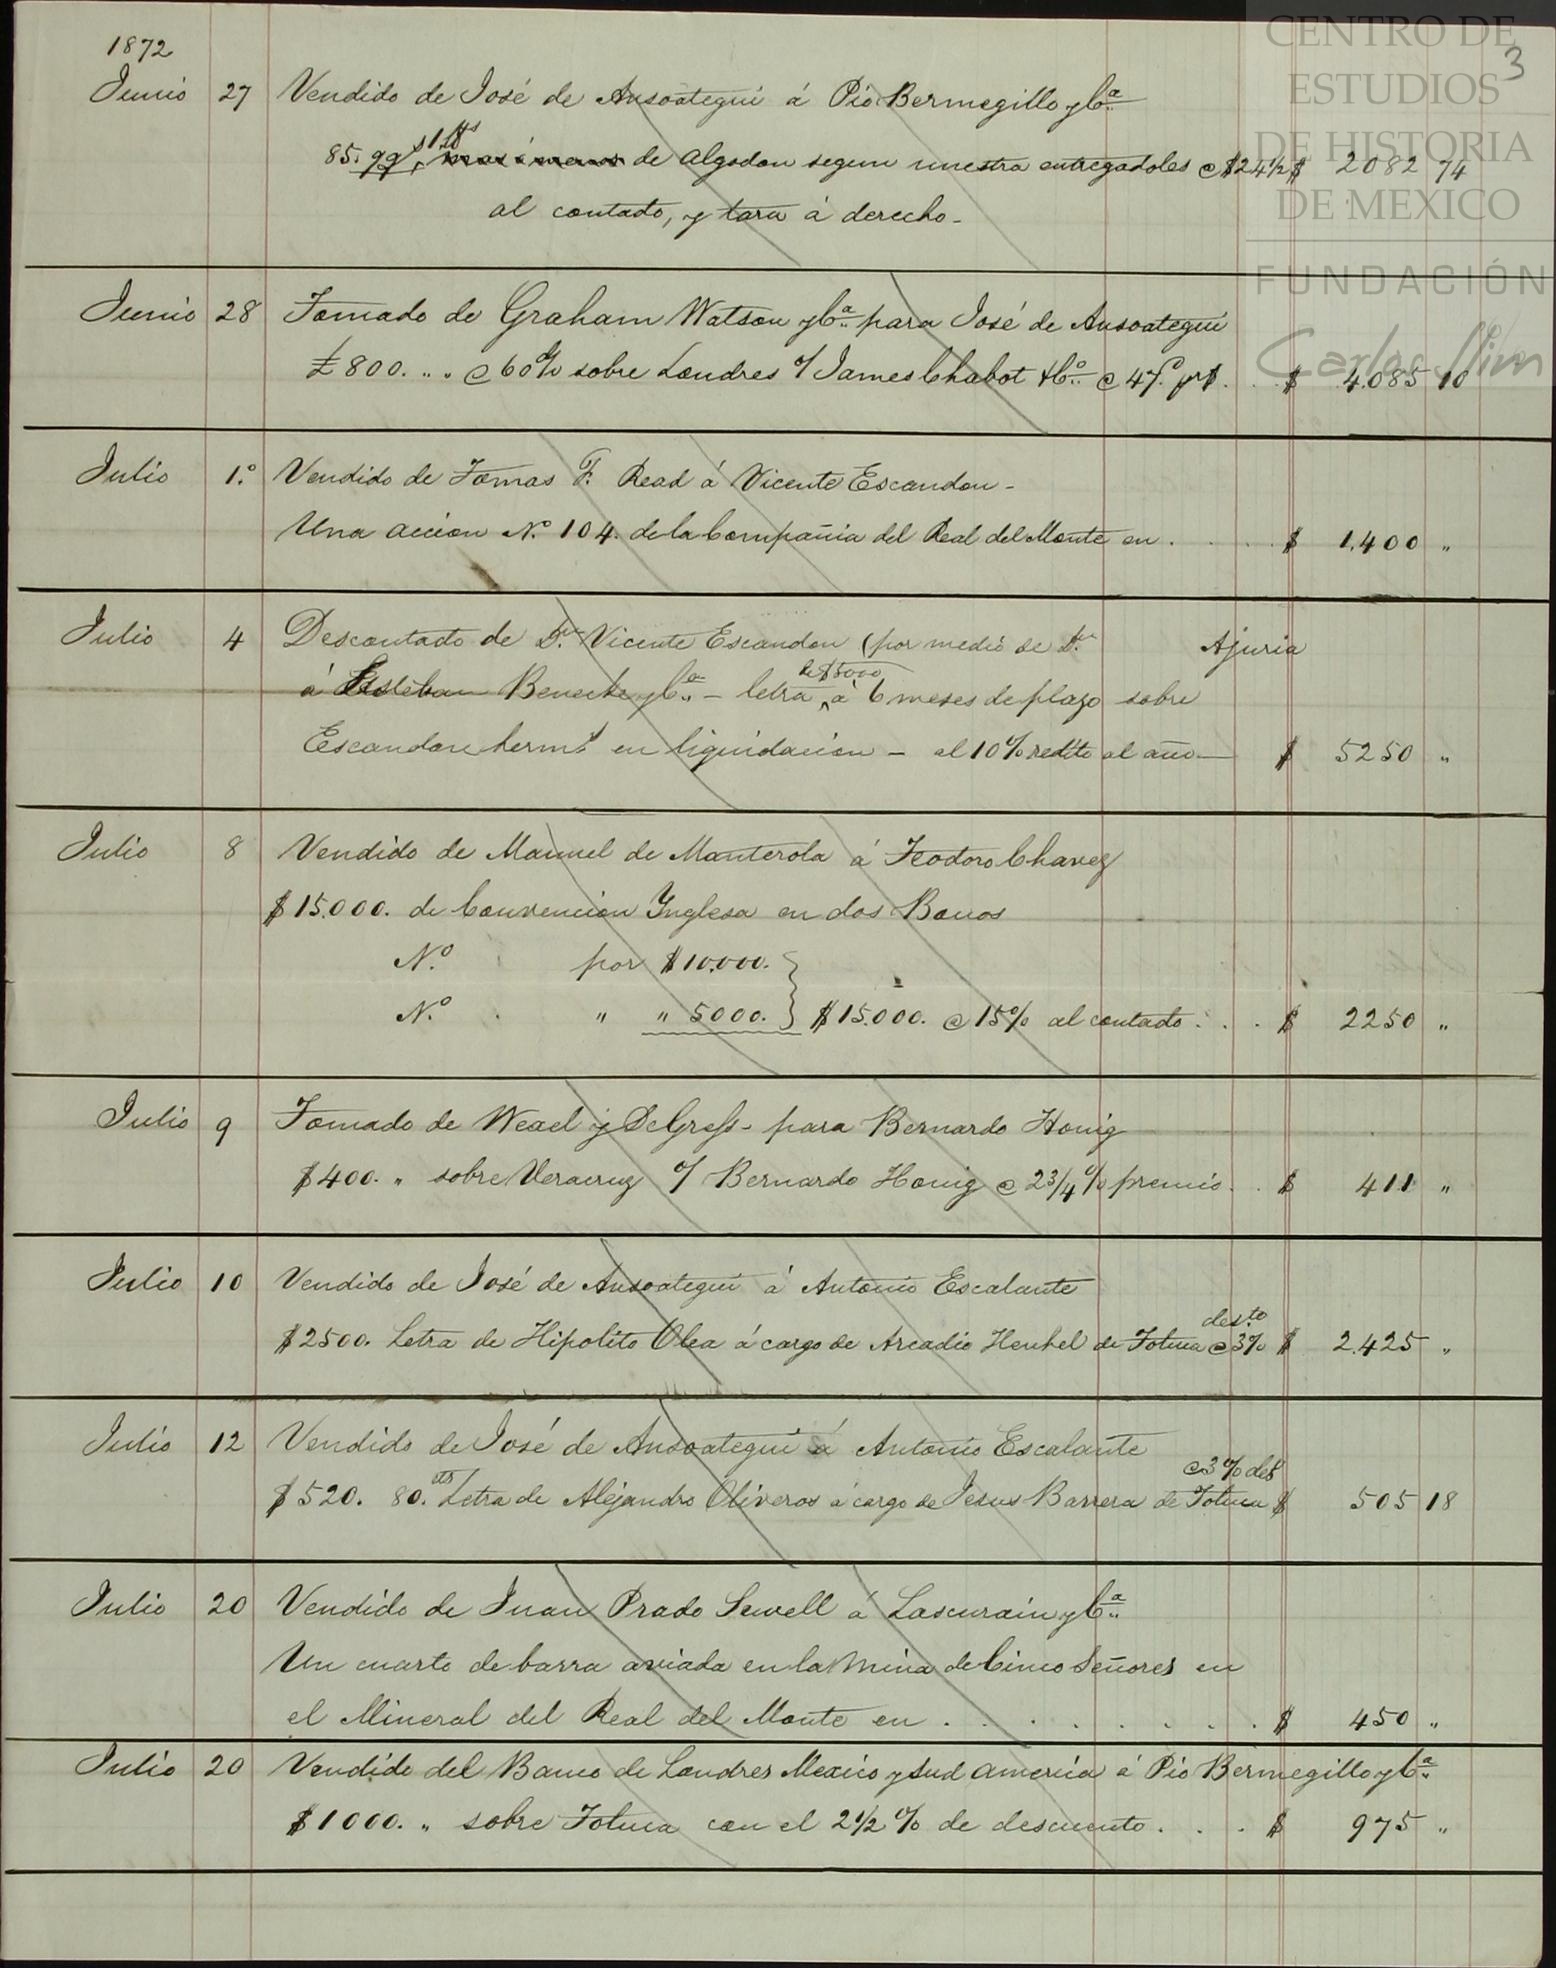 CENTRO DE
ESTUDIOS
DE HISTORIA
DE MEXICO
FUNDACIÓN
Carlos Slim
3
1872
Junio 27 Vendido de José de Ansoategui á Pío Bermegillo y Cª
85. qqs 1 lb de Algodon segun muestra entregadoles @ $24½ $ 2082 74
al contado, y tara á derecho -
Junio 28 Tomado de Graham Watson y Cª para José de Ansoategui
£ 800. " . @ 60 d/v sobre Londres o/ James Chabot & Cº @ 47 p. $ 4.085 10
Julio 1.º Vendido de Tomas F. Read á Vicente Escandon -
Una accion Nº 104. de la Compañia del Real del Monte en . . . . $ 1.400 "
Julio 4 Descontado de Dn Vicente Escandon (por medio de Dn Ajuria
de $5000
á Esteban Benecke y Cª - letra á 6 meses de plazo sobre
Escandon hermˢ en liquidacion - al 10% redito al año — $ 5250 "
Julio 8 Vendido de Manuel de Manterola á Teodoro Chavez
$15.000. de Convencion Inglesa en dos Bonos
Nº por $10.000.
Nº " " 5000. } $15.000. @ 15% al contado . . . $ 2250 "
Julio 9 Tomado de Wexel y DeGress - para Bernardo Honig
$400. " sobre Veracruz o/ Bernardo Honig @ 2¾% premio . . $ 411 "
Julio 10 Vendido de José de Ansoategui á Antonio Escalante
desto
$2500. Letra de Hipolito Olea á cargo de Arcadio Henkel de Toluca @ 3% $ 2.425 "
Julio 12 Vendido de José de Ansoategui á Antonio Escalante
@ 3% desᵗ
$520. 80.cts Letra de Alejandro Oliveros á cargo de Jesus Barrera de Toluca $ 505 18
Julio 20 Vendido de Juan Prado Sewell á Lascurain y Cª
Un cuarto de barra aviada en la Mina de Cinco Señores en
el Mineral del Real del Monte en . . . . . . . . $ 450 "
Julio 20 Vendido del Banco de Londres Mexico y Sud America á Pío Bermegillo y Cª
$1000. " sobre Toluca con el 2½% de descuento . . . $ 975 "